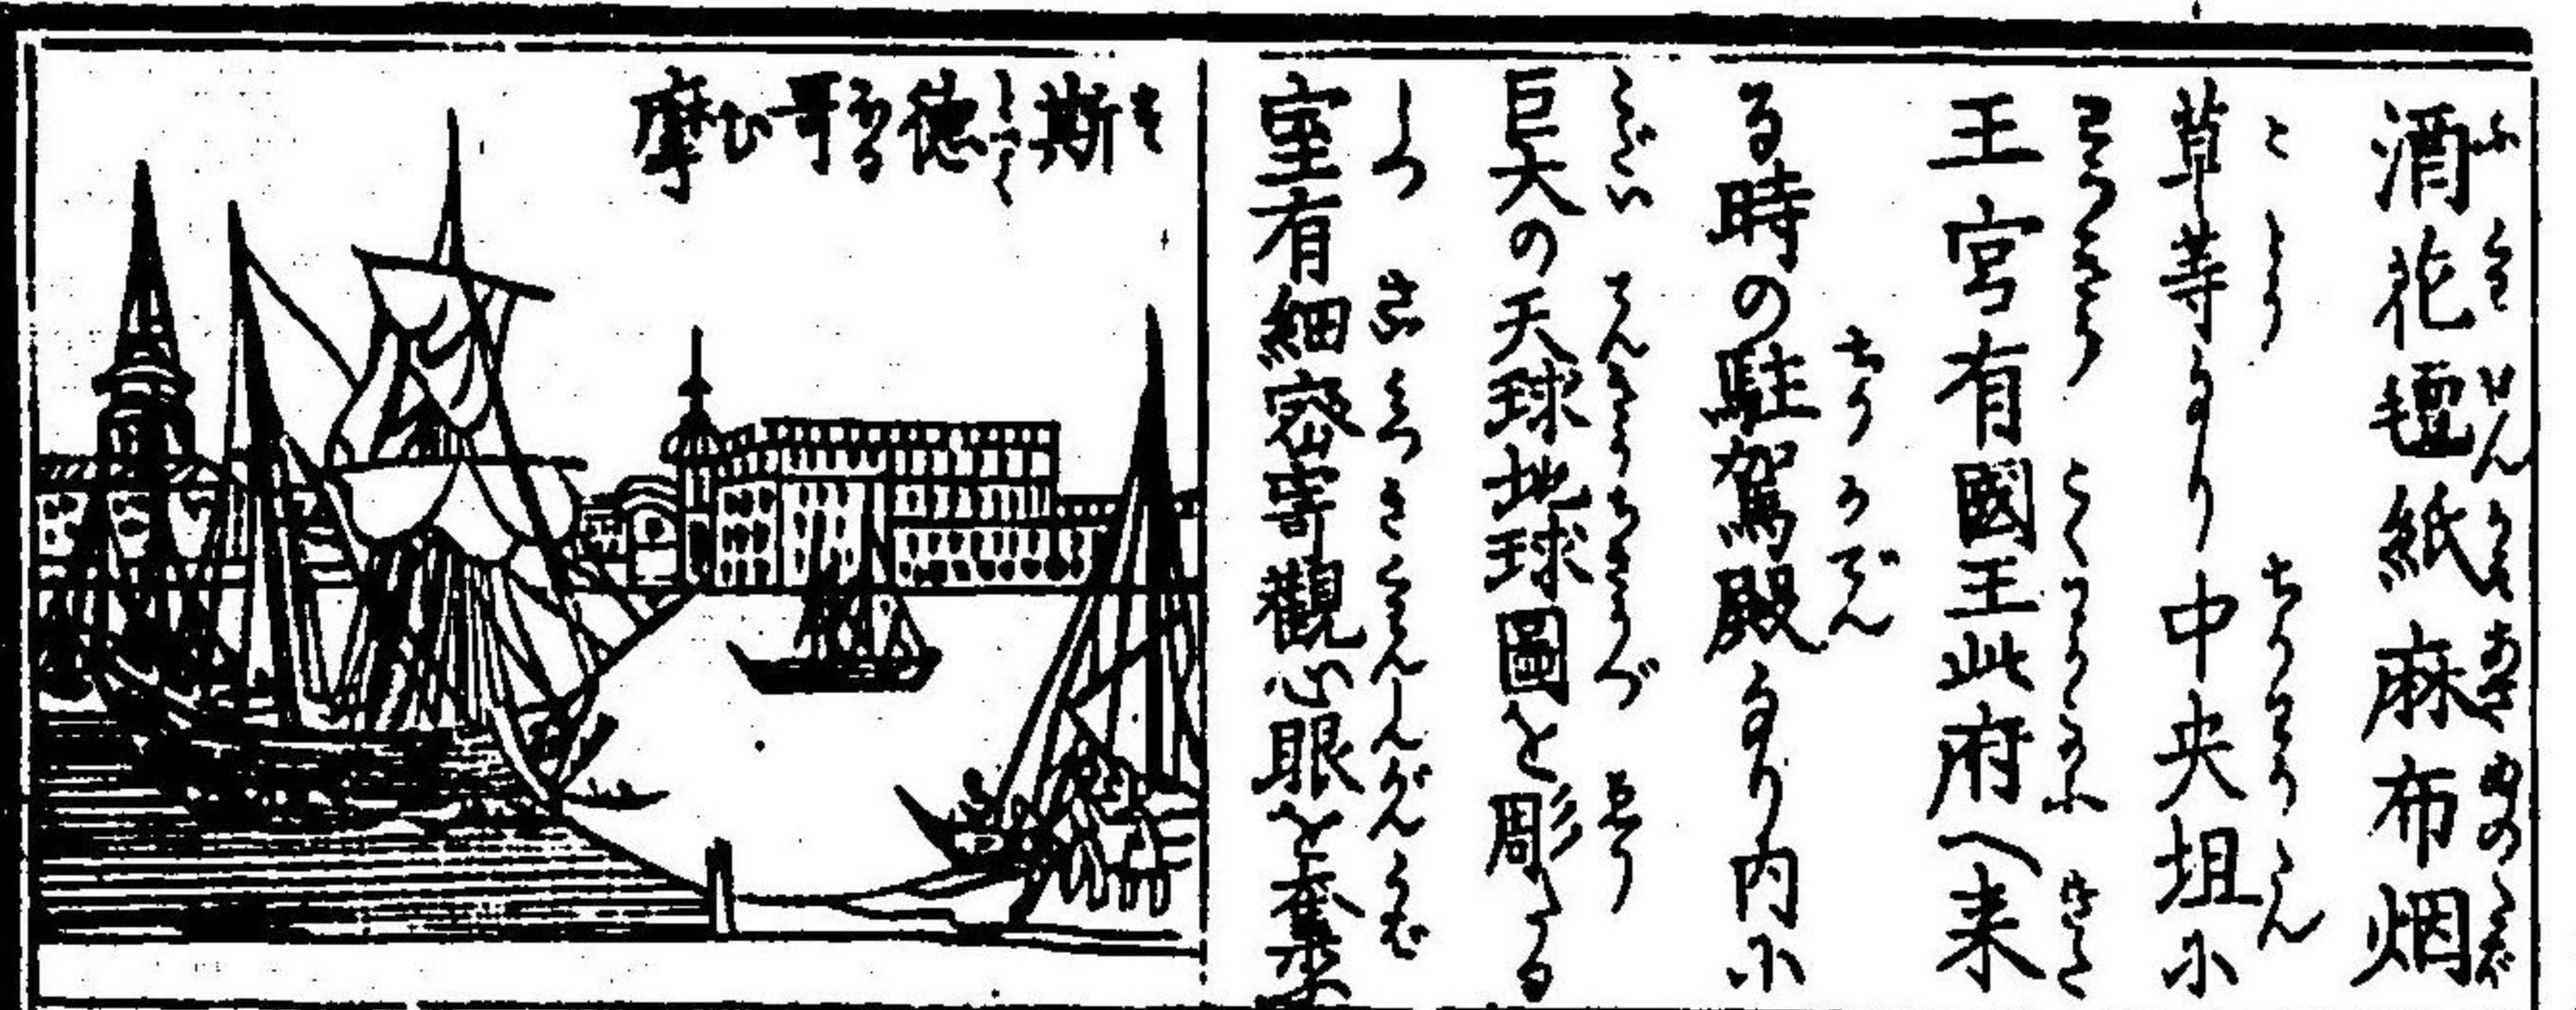 酒花氊紙麻布烟
草等なり中央坦に
王宮有國王此府へ来
る時の駐駕殿なり内に
巨大の天球地球圖を彫たる
室有細密寄觀心眼を奪
斯徳哥摩